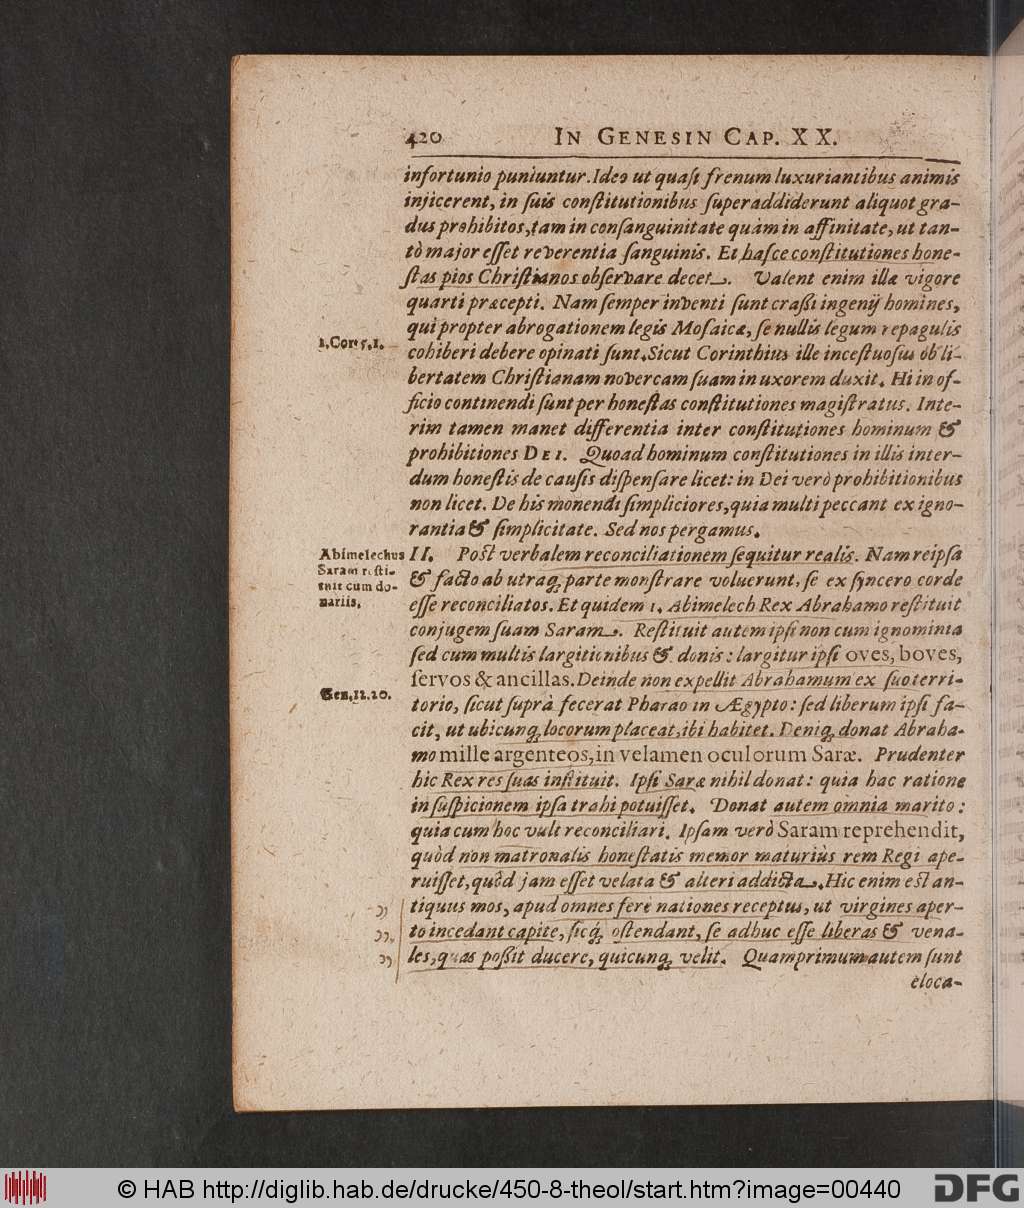 420 IN GENESIN CAP. XX.
infortunio puniuntur. Ideo ut quaſi frenum luxuriantibus animis
injicerent, in ſuis conſtitutionibus ſuperaddiderunt aliquot gra-
dus prohibitos, tam in conſanguinitate quàm in affinitate, ut tan-
tò major eſſet reverentia ſanguinis. Et haſce conſtitutiones hone-
ſtas pios Chriſtianos obſervare decet. Valent enim illæ vigore
quarti præcepti. Nam ſemper inventi ſunt craßi ingenij homines,
qui propter abrogationem legis Moſaicæ, ſe nullis legum repagulis
1. Cor. 5, 1.
cohiberi debere opinati ſunt. Sicut Corinthius ille inceſtuoſus ob li-
bertatem Chriſtianam novercam ſuam in uxorem duxit. Hi in of-
ficio continendi ſunt per honeſtas conſtitutiones magiſtratus. Inte-
rim tamen manet differentia inter conſtitutiones hominum &
prohibitiones DEI. Quoad hominum conſtitutiones in illis inter-
dum honeſtis de cauſis diſpenſare licet: in Dei verò prohibitionibus
non licet. De his monendi ſimpliciores, quia multi peccant ex igno-
rantia & ſimplicitate. Sed nos pergamus.
Abimelechus
Saram reſti-
tuit cum do-
nariis.
II. Poſt verbalem reconciliationem ſequitur realis. Nam reipſa
& facto ab utraq; parte monſtrare voluerunt, ſe ex ſyncero corde
eſſe reconciliatos. Et quidem 1. Abimelech Rex Abrahamo reſtituit
conjugem ſuam Saram. Reſtituit autem ipſi non cum ignominia
ſed cum multis largitionibus & donis: largitur ipſi oves, boves,
ſervos & ancillas. Deinde non expellit Abrahamum ex ſuo terri-
Gen. 12. 20.
torio, ſicut ſuprà fecerat Pharao in Ægypto: ſed liberum ipſi fa-
cit, ut ubicunq; locorum placeat, ibi habitet. Deniq; donat Abraha-
mo mille argenteos, in velamen oculorum Saræ. Prudenter
hic Rex res ſuas inſtituit. Ipſi Saræ nihil donat: quia hac ratione
in ſuſpicionem ipſa trahi potuiſſet. Donat autem omnia marito:
quia cum hoc vult reconciliari. Ipſam verò Saram reprehendit,
quòd non matronalis honeſtatis memor maturiùs rem Regi ape-
ruiſſet, quòd jam eſſet velata & alteri addicta. Hic enim eſt an-
tiquus mos, apud omnes ferè nationes receptus, ut virgines aper-
to incedant capite, ſicq; oſtendant, ſe adhuc eſſe liberas & vena-
les, quas poßit ducere, quicunq; velit. Quamprimum autem ſunt
eloca-
© HAB http://diglib.hab.de/drucke/450-8-theol/start.htm?image=00440
DFG